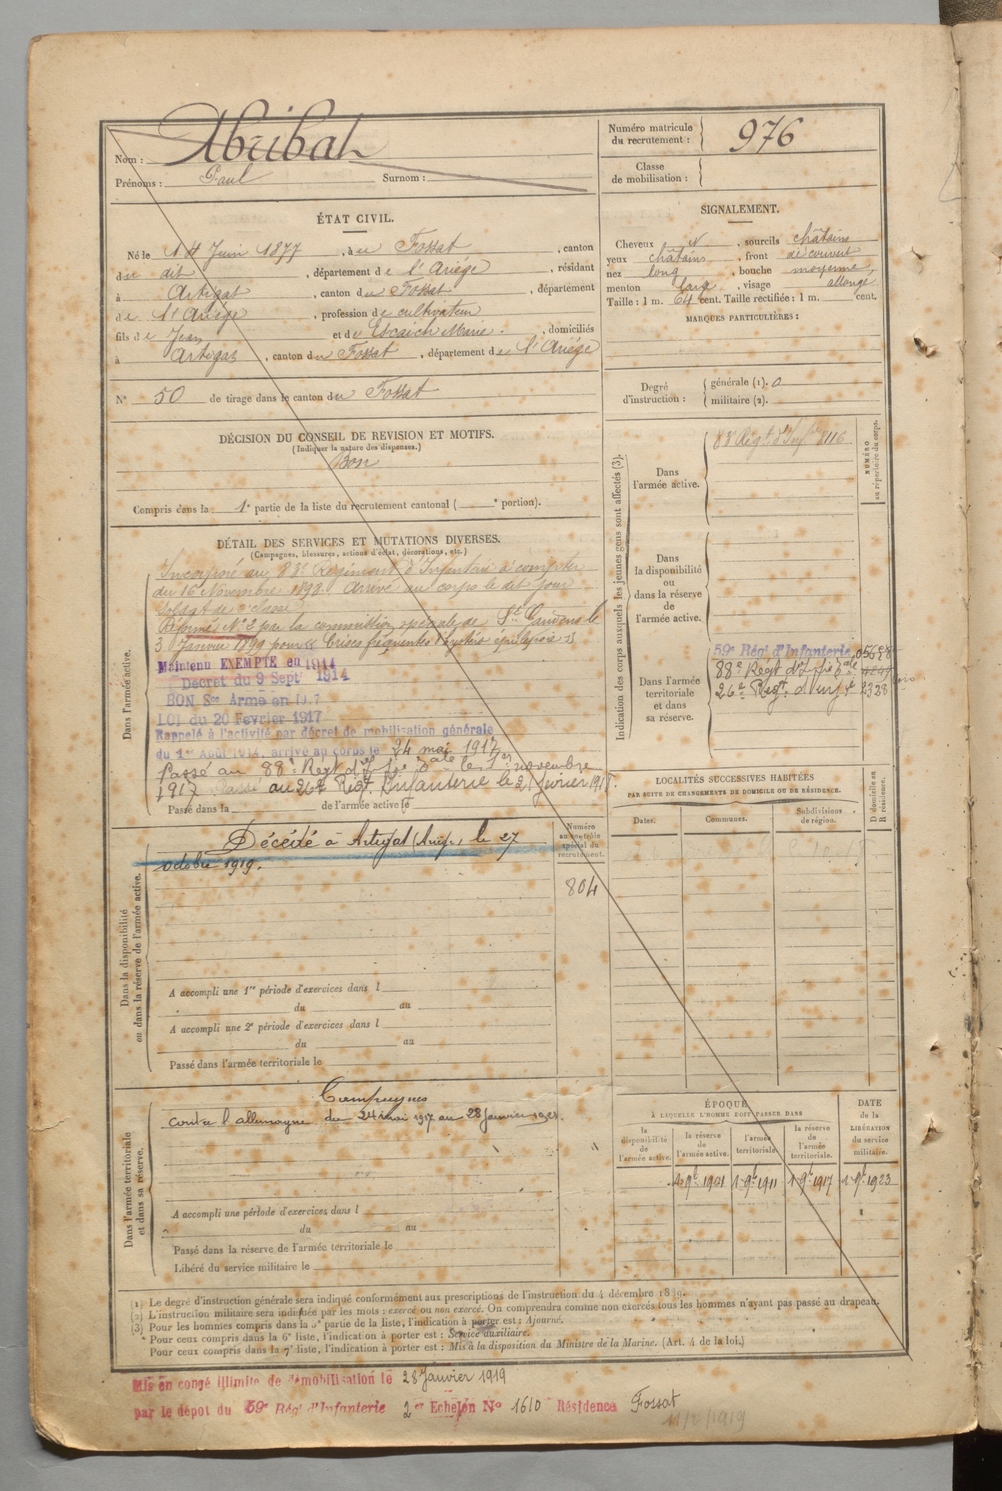 Nom : Abribat
Prénoms : Paul Surnom :
Numéro matricule
du recrutement : 976
Classe
de mobilisation :
ÉTAT CIVIL.
Né le 14 Juin 1877, à au Fossat, canton
du dit, département de l'Ariége, résidant
à Artigat, canton du Fossat, département
de l'Ariége, profession de cultivateur
fils de Jean et de Escaich Marie, domiciliés
à Artigat, canton du Fossat, département de l'Ariége
N° 50 de tirage dans le canton du Fossat
DÉCISION DU CONSEIL DE REVISION ET MOTIFS.
(Indiquer la nature des dispenses.)
Bon
Compris dans la 1e partie de la liste du recrutement cantonal ( e portion).
SIGNALEMENT.
Cheveux N, sourcils châtains
yeux châtains, front découvert
nez long, bouche moyenne,
menton large, visage allongé
Taille : 1 m. 64 cent. Taille rectifiée : 1 m. cent.
MARQUES PARTICULIÈRES :
Degré
d'instruction :
générale (1). 0
militaire (2).
DÉTAIL DES SERVICES ET MUTATIONS DIVERSES.
(Campagnes, blessures, actions d'éclat, décorations, etc.)
Dans l'armée active.
Incorporé au 83e Régiment d'Infanterie à compter
du 16 Novembre 1898. Arrivé au corps le dit jour
Soldat de 2e classe
Réformé N° 2 par la commission spéciale de St Gaudens le
3 Janvier 1899 pour "Crises fréquentes
Maintenu EXEMPTÉ en 1914
Décret du 9 Septre 1914
BON Sce Armé en 1917
LOI du 20 Fevrier 1917
Rappelé à l'activité par décret de mobilisation générale
du 1er Août 1914, arrivé au corps le 24 mai 1917
Passé au 88e Regt d'Ifrie le 1er novembre
1917. Passé au 26e Regt. d'Infanterie le 21 février 1918.
Passé dans la de l'armée active le
Indication des corps auxquels les jeunes gens sont affectés (3).
NUMÉRO
au répertoire du corps.
Dans
l'armée active.
83e Régt d'Infie 8116
Dans
la disponibilité
ou
dans la réserve
de
l'armée active.
Dans l'armée
territoriale
et dans
sa réserve.
59e Régt d'Infanterie 05698
88e Régt d'Infie
26e Regt d'Inf 2328
Dans la disponibilité
ou dans la réserve de l'armée active.
Décédé à Artigat (Ariège) le 27
octobre 1919.
Numéro
au contrôle
spécial du
recrutement.
804
A accompli une 1re période d'exercices dans l
du au
A accompli une 2e période d'exercices dans l
du au
Passé dans l'armée territoriale le
LOCALITÉS SUCCESSIVES HABITÉES
PAR SUITE DE CHANGEMENTS DE DOMICILE OU DE RÉSIDENCE.
Dates. Communes. Subdivisions
de région.
D domicile ou
R résidence.
Dans l'armée territoriale
et dans sa réserve.
Campagnes
contre l'allemagne du 24 mai 1917 au 28 Janvier 1919.
A accompli une période d'exercices dans l
du au
Passé dans la réserve de l'armée territoriale le
Libéré du service militaire le
ÉPOQUE
À LAQUELLE L'HOMME DOIT PASSER DANS
DATE
de la
LIBÉRATION
du service
militaire.
la
disponibilité
de
l'armée active.
la réserve
de
l'armée active.
l'armée
territoriale.
la réserve
de
l'armée
territoriale.
1 9b 1901 1 9b 1911 1 9b 1917 1 9b 1923
(1) Le degré d'instruction générale sera indiqué conformément aux prescriptions de l'instruction du 4 décembre 1889.
(2) L'instruction militaire sera indiquée par les mots : exercé ou non exercé. On comprendra comme non exercés tous les hommes n'ayant pas passé au drapeau.
(3) Pour les hommes compris dans la 5e partie de la liste, l'indication à porter est : Ajourné.
Pour ceux compris dans la 6e liste, l'indication à porter est : Service auxiliaire.
Pour ceux compris dans la 7e liste, l'indication à porter est : Mis à la disposition du Ministre de la Marine. (Art. 4 de la loi.)
Mis en congé illimité de démobilisation le 28 Janvier 1919
par le dépôt du 59e Régt d'Infanterie 2er Echelon N° 1610 Résidence Fossat
11/2/1919